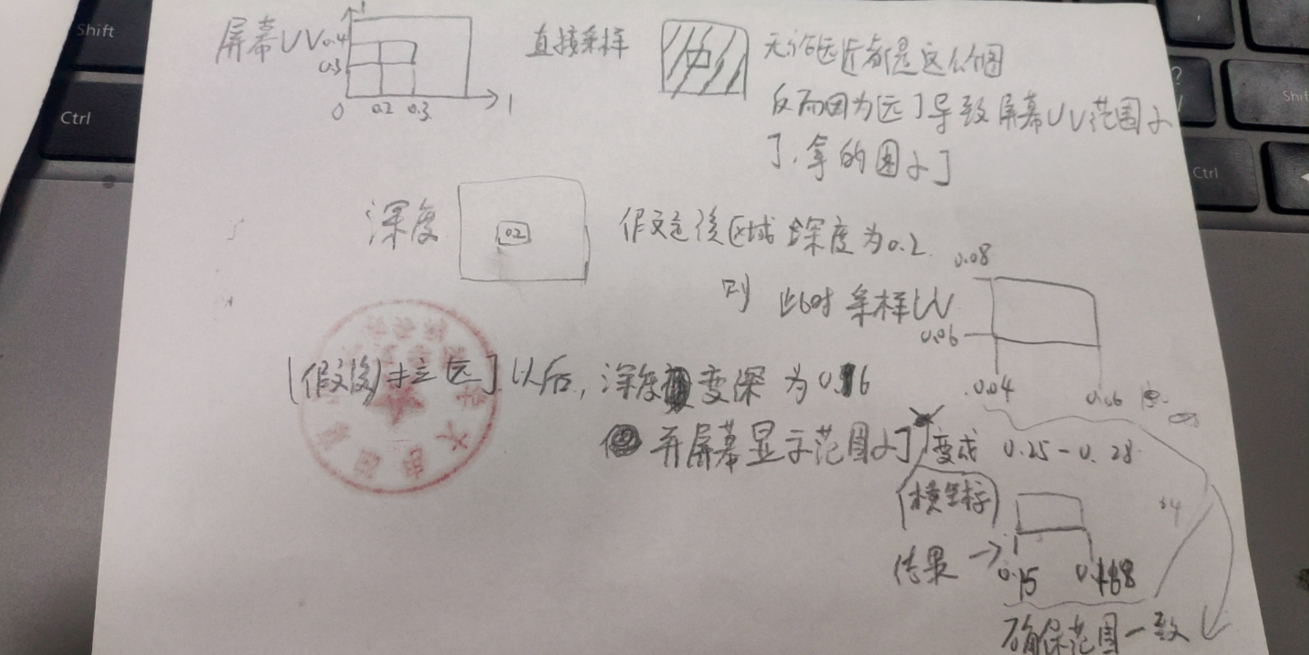 Shift
Ctrl
屏幕UV
1
0.4
0.3
0
0.2
0.3
1
直接采样
无论远近都是这个图
反而因为远了导致屏幕UV范围小
了,拿的图小了
深度
0.2
假设这后区域深度为0.2
则 此时采样UV
0.08
0.06
0.04
0.06
(假设)拉远了以后,深度变深为0.6
并屏幕显示范围小了 变成 0.25-0.28
(横坐标)
结果→
0.15
0.168
确保范围一致
?
Shift
Ctrl